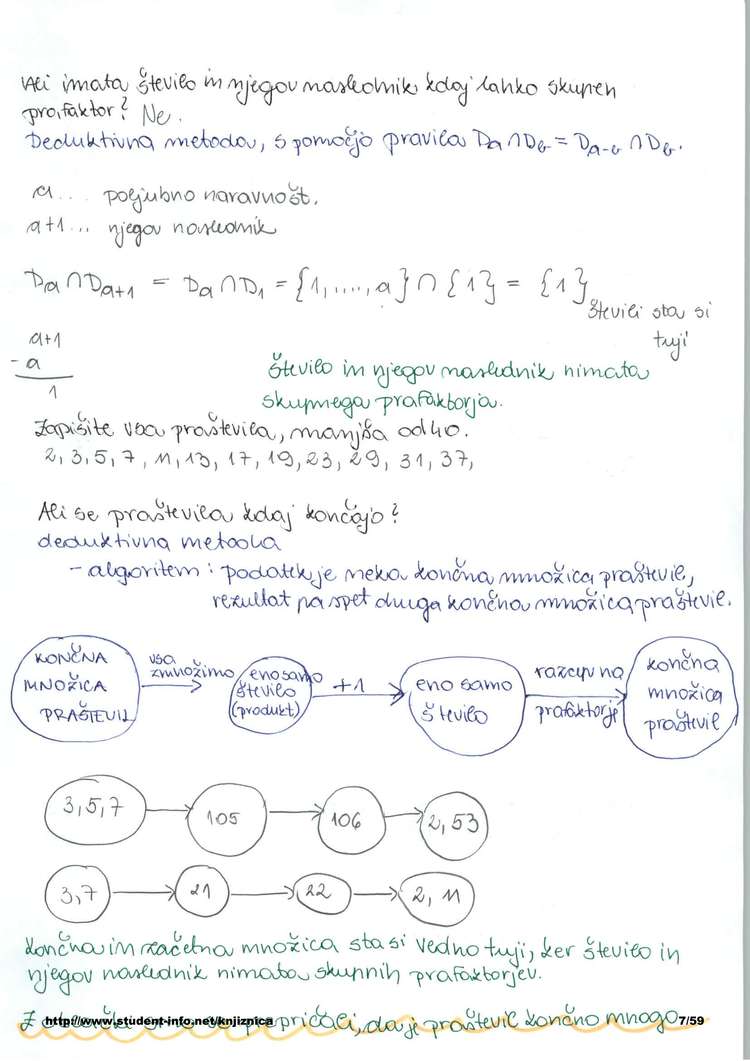 Ali imata število in njegov naslednik kdaj lahko skupen
prafaktor? Ne.
Deduktivna metoda, s pomočjo pravila Da ∩ Db = Da-b ∩ Db.
a.... poljubno naravno št.
a+1... njegov naslednik
Da ∩ Da+1 = Da ∩ D1 = {1,....,a} ∩ {1} = {1}
števili sta si
tuji
a+1
- a
1
število in njegov naslednik nimata
skupnega prafaktorja.
Zapišite vsa praštevila, manjša od 40.
2, 3, 5, 7, 11, 13, 17, 19, 23, 29, 31, 37,
Ali se praštevila kdaj končajo?
deduktivna metoda
- algoritem: podatek je neka končna množica praštevil,
rezultat pa spet druga končna množica praštevil.
KONČNA
MNOŽICA
PRAŠTEVIL
vsa
zmnožimo
eno samo
število
(produkt)
+1
eno samo
število
razcep na
prafaktorje
končna
množica
praštevil
3, 5, 7
105
106
2, 53
3, 7
21
22
2, 11
Končna in začetna množica sta si vedno tuji, ker število in
njegov naslednik nimata skupnih prafaktorjev.
Z
http://www.student-info.net/knjiznica
prepričali, da je praštevil končno mnogo
7/59